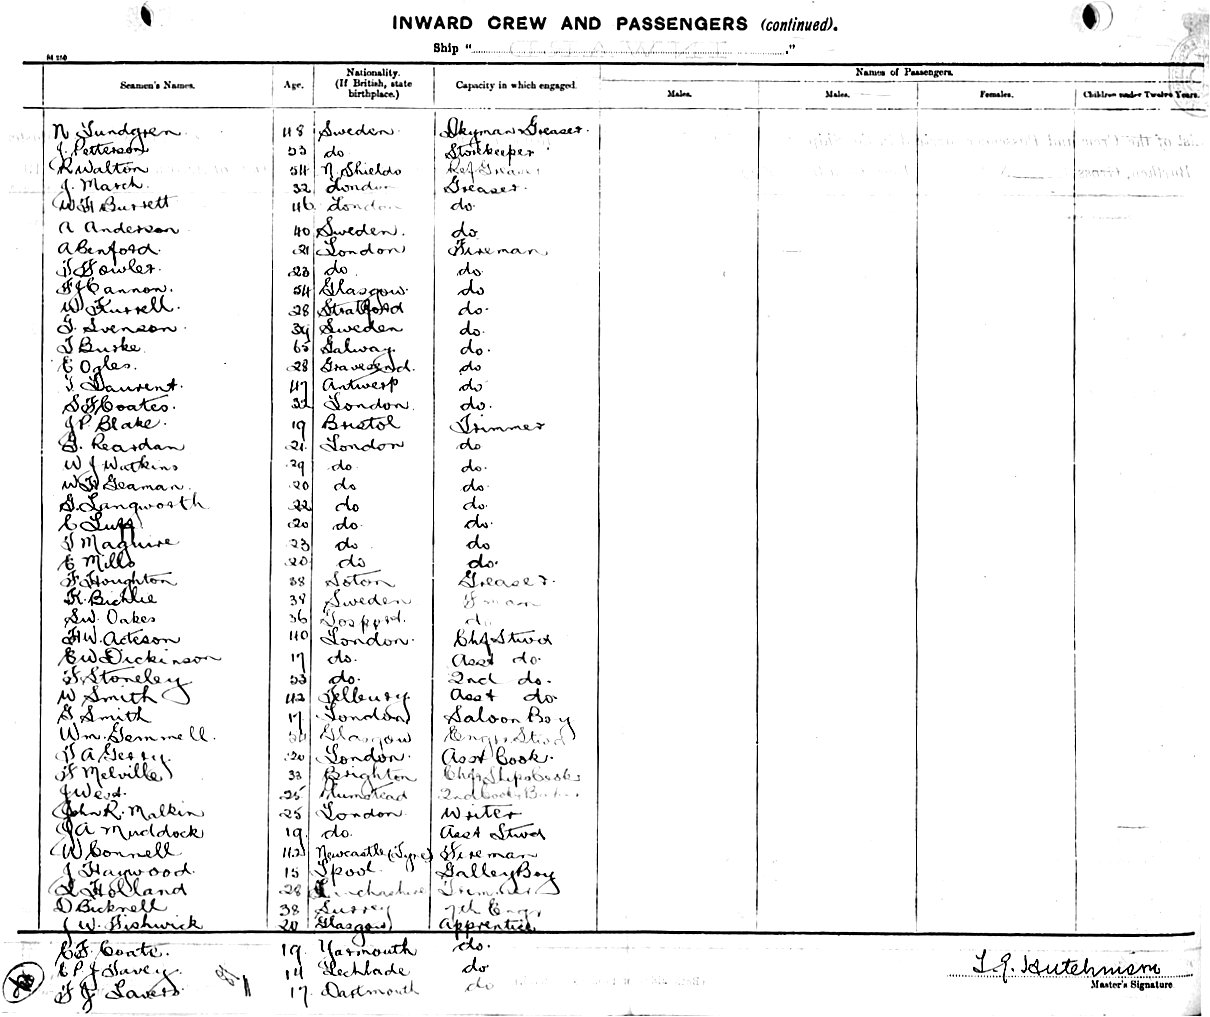 INWARD CREW AND PASSENGERS (continued).
Ship "
M 250
Seamen's Names. Age. Nationality. (If British, state birthplace.) Capacity in which engaged. Names of Passengers.
Males. Males. Females. Children under Twelve Years.
N Lundgren 48 Sweden Dkyman Greaser.
J. Petterson 53 do Storekeeper
R Walton 54 N. Shields Ref Greaser
J. March. 32 London Greaser.
W H Burrett 46 London do.
A Anderson 40 Sweden. do
A Benford. 21 London Fireman
T Fowler. 23 do do
F J Cannon. 54 Glasgow do
W Kurrell. 28 Stratford do.
T. Svenson 39 Sweden do.
T Burke 65 Galway do.
E Ogles. 28 Gravesend. do
T Laurent. 47 Antwerp do
S F Coates. 32 London do.
J P Blake. 19 Bristol Trimmer
G. Reardan 21. London do
W J Watkins 29 do. do.
W H Seaman 20 do do.
G. Langworth 22 do do.
C Luff 20 do. do.
T Maguire 23 do do
E Mills 20 do do.
F. Houghton 38 Soton Greaser.
K. Bichlie 38 Sweden Fman
S.W. Oakes 36 Gosport. do
H W. Acteson 40 London. Chf Stwd
E W Dickinson 17 do. Asst do.
F. Stoneley 53 do. 2nd do.
W Smith 42 Tilbury Asst do.
G Smith 17 London Saloon Boy
Wm. Gemmell. Glasgow Engrs Stwd
T A Gerry. 20 London. Asst Cook.
F Melville 33 Brighton Chf Ships Cook
J West. 25 Plumstead 2nd Cook & Baker
John R. Malkin 25 London Writer
J A Muddock 19. do. Asst Stwd
W Connell 42 Newcastle (Tyne) Fireman
J Haywood. 15 L'pool. Galley Boy
L Holland 28 Lincolnshire Trimmer
D Bicknell 38 Surrey 7th Engr
J W. Fishwick 20 Glasgow Apprentice
C F. Coate. 19. Yarmouth do.
C P J Savey. 14 Lechlade do
F J. Lavers 17. Dartmouth do
Master's Signature